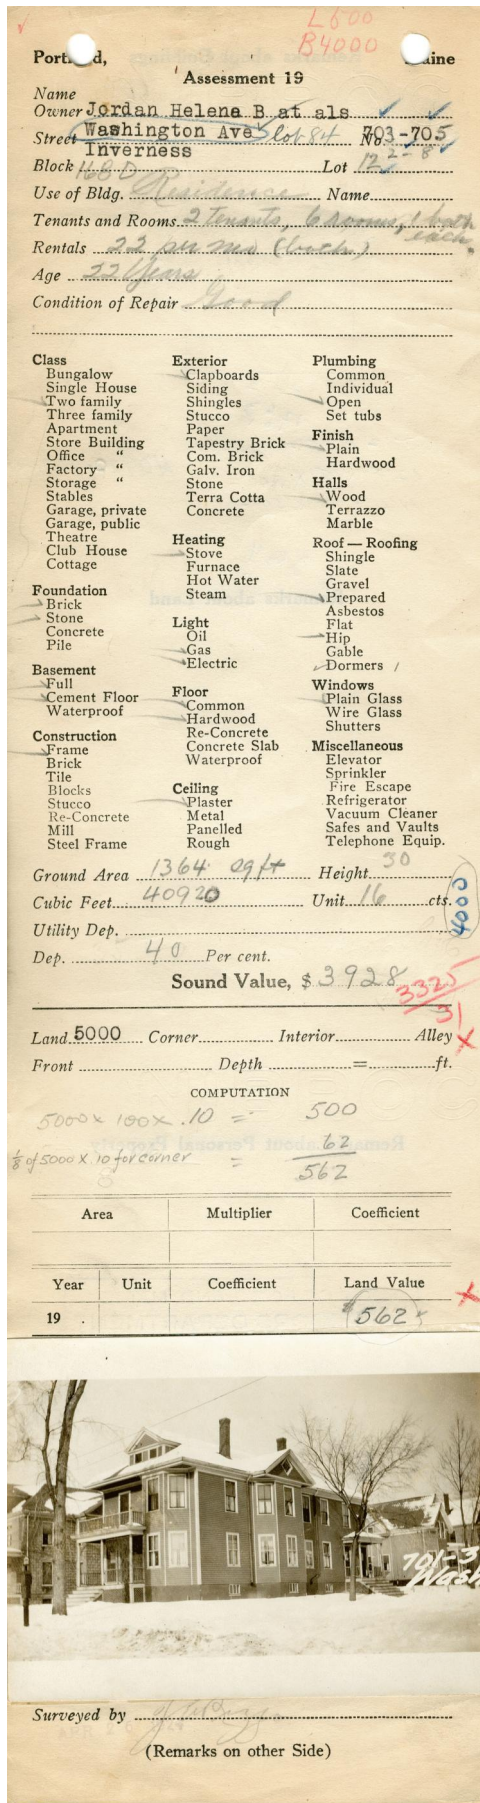 L500
B4000
Portland, Maine
Assessment 19
Name
Owner Jordan Helena B at als
Street Washington Ave lot 84 No. 703-705
Inverness 2-8
Block 168 D Lot 12
Use of Bldg. Residence Name
Tenants and Rooms 2 Tenants, 6 rooms, 1 bath each.
Rentals 22 per mo (both)
Age 22 Years
Condition of Repair Good
Class
Bungalow
Single House
Two family
Three family
Apartment
Store Building
Office "
Factory "
Storage "
Stables
Garage, private
Garage, public
Theatre
Club House
Cottage
Foundation
Brick
Stone
Concrete
Pile
Basement
Full
Cement Floor
Waterproof
Construction
Frame
Brick
Tile
Blocks
Stucco
Re-Concrete
Mill
Steel Frame
Exterior
Clapboards
Siding
Shingles
Stucco
Paper
Tapestry Brick
Com. Brick
Galv. Iron
Stone
Terra Cotta
Concrete
Heating
Stove
Furnace
Hot Water
Steam
Light
Oil
Gas
Electric
Floor
Common
Hardwood
Re-Concrete
Concrete Slab
Waterproof
Ceiling
Plaster
Metal
Panelled
Rough
Plumbing
Common
Individual
Open
Set tubs
Finish
Plain
Hardwood
Halls
Wood
Terrazzo
Marble
Roof — Roofing
Shingle
Slate
Gravel
Prepared
Asbestos
Flat
Hip
Gable
Dormers 1
Windows
Plain Glass
Wire Glass
Shutters
Miscellaneous
Elevator
Sprinkler
Fire Escape
Refrigerator
Vacuum Cleaner
Safes and Vaults
Telephone Equip.
Ground Area 1364 sq ft Height 30
Cubic Feet 40920 Unit 16 cts.
4000
Utility Dep.
Dep. 40 Per cent.
Sound Value, $ 3928
3325
31
Land 5000 Corner Interior Alley
Front Depth = ft.
COMPUTATION
5000 x 100 x .10 = 500
1/8 of 5000 x .10 for corner = 62
562
Area Multiplier Coefficient
Year Unit Coefficient Land Value
19 . $562
701-3
Wash
Surveyed by
(Remarks on other Side)